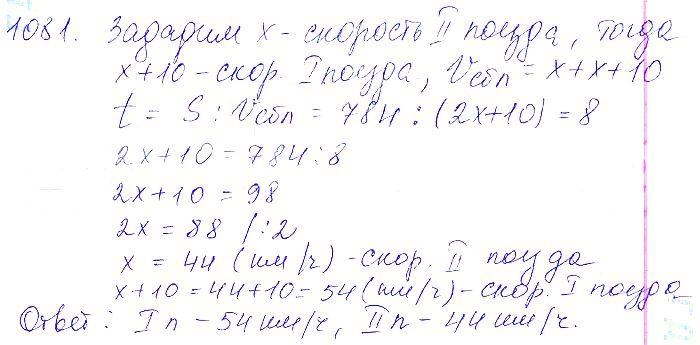 1081. Зададим х - скорость II поезда, тогда
х+10 - скор. I поезда, Vсбл = х+х+10
t = S : Vсбл = 784 : (2х+10) = 8
2х+10 = 784:8
2х+10 = 98
2х = 88 /:2
х = 44 (км/ч) - скор. II поезда
х+10 = 44+10 = 54 (км/ч) - скор. I поезда
Ответ: I п - 54 км/ч, II п - 44 км/ч.